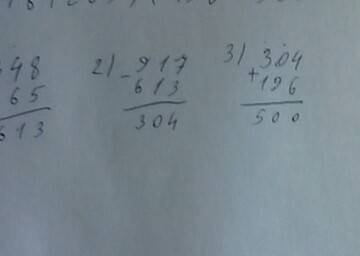 48
65
613
2) - 917
613
304
3) + 304
196
500